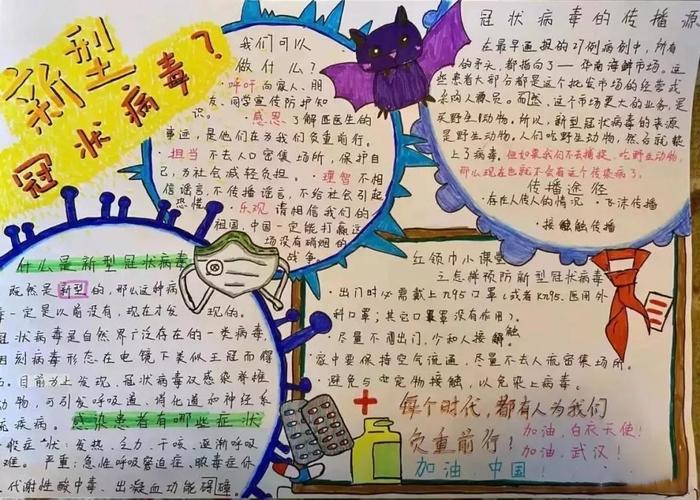 新型
冠状病毒?
我们可以
做什么?
·呼吁向家人、朋
友、同学宣传防护知
识。·感恩了解医医生的
事迹,是他们在为我们负重前行。
·担当不去人口密集场所,保护自
己,为社会减轻负担。·理智不相
信谣言,不传播谣言,不给社会引起
恐慌。
·乐观请相信我们的
祖国,中国一定能打赢这
场没有硝烟的
战争
冠状病毒的传播源
在最早通报的27例病例中,所有
的矛头,都指向了——华南海鲜市场。这
些患者大部分都是这个批发市场的经营或
采购人员。而然,这个市场更大的业务,是
买野生动物。所以,新型冠状病毒的来源
是野生动物,人们吃野生动物,然后就染
上了病毒。但如果我们不去捕捉、吃野生动物,
那么现在也就不会有这个传染病了。
传播途径
·存在人传人的情况 ·飞沫传播
·接触传播
什么是新型冠状病毒
既然是新型的,那么这种病
毒一定是以前没有,现在才发现的。
冠状病毒是自然界广泛存在的一类病毒,
因刻病毒形态在电镜下类似王冠而得
名。目前为止发现,冠状病毒仅感染脊椎
动物,可引发呼吸道、消化道和神经系
统疾病。感染患者有哪些症状
一般症状:发热、乏力、干咳、逐渐呼吸
困难。严重:急性呼吸窘迫症、脓毒症休
、代谢性酸中毒、出凝血功能碍障
红领巾小课堂
之怎样预防新型冠状病毒
·出门时必需戴上n95口罩(或者Kn95、医用外
科口罩;其它口罩罩没有作用)。
·尽量不周出门,少和人接触
·家中要保持空气流通,尽量不去人流密集场所。
·避免与些宠物接触,以免染上病毒。
每个时代,都有人为我们
负重前行?加油,白衣天使!
加油,武汉!
加油,中国!